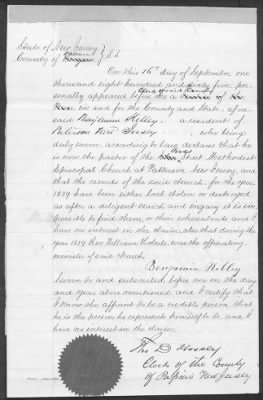 State of New Jersey }
County of Passaic } S.S.
On this 16th day of September one
thousand eight hundred and sixty five, per-
sonally appeared before me a
in and for the County and State, afore-
said Benjamin Kelley a resident of
Paterson New Jersey, who being
duly sworn, according to law, declares that he
is now the pastor of the Cross Street Methodist
Episcopal Church at Patterson New Jersey, and
that the records of the said church, for the year
1839 have been either lost stolen or destroyed
as after a diligent search and enquiry it is im-
possible to find them, or their whereabouts and I
have no interest in the claim, also that during the
year 1839 Rev. William Roberts was the officiating
minister of said church.
Benjamin Kelley
Sworn to and subscribed before me on the day
and year above mentioned and I certify that
I know the affiant to be a credible person, that he
is the person he represents himself to be and I
have no interest in the claim.
Tho D
Clerk of the County
of Passaic New Jersey